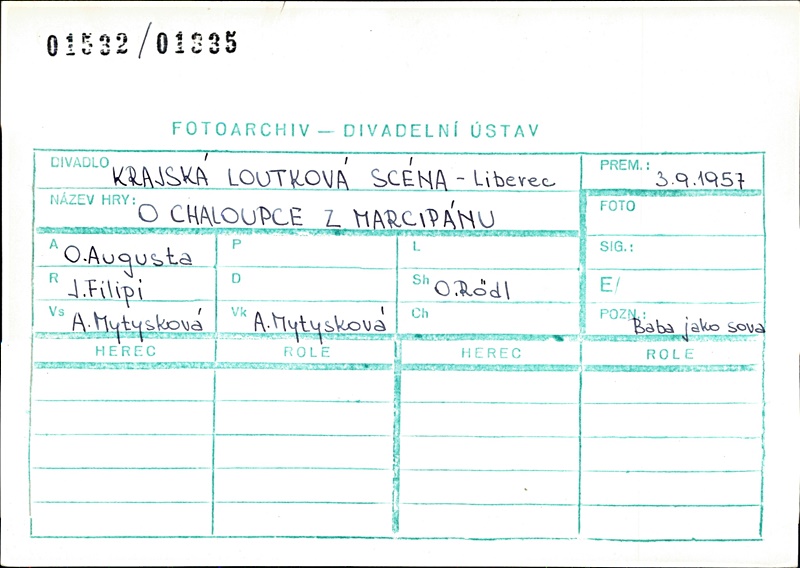 01532/01835
FOTOARCHIV — DIVADELNÍ ÚSTAV
DIVADLO KRAJSKÁ LOUTKOVÁ SCÉNA - Liberec PREM.: 3.9.1957
NÁZEV HRY: O CHALOUPCE Z MARCIPÁNU FOTO
A O.Augusta P L SIG.:
R J.Filipi D Sh O.Rödl E/
Vs A.Mytysková Vk A.Mytysková Ch POZN.: Baba jako sova
HEREC ROLE HEREC ROLE